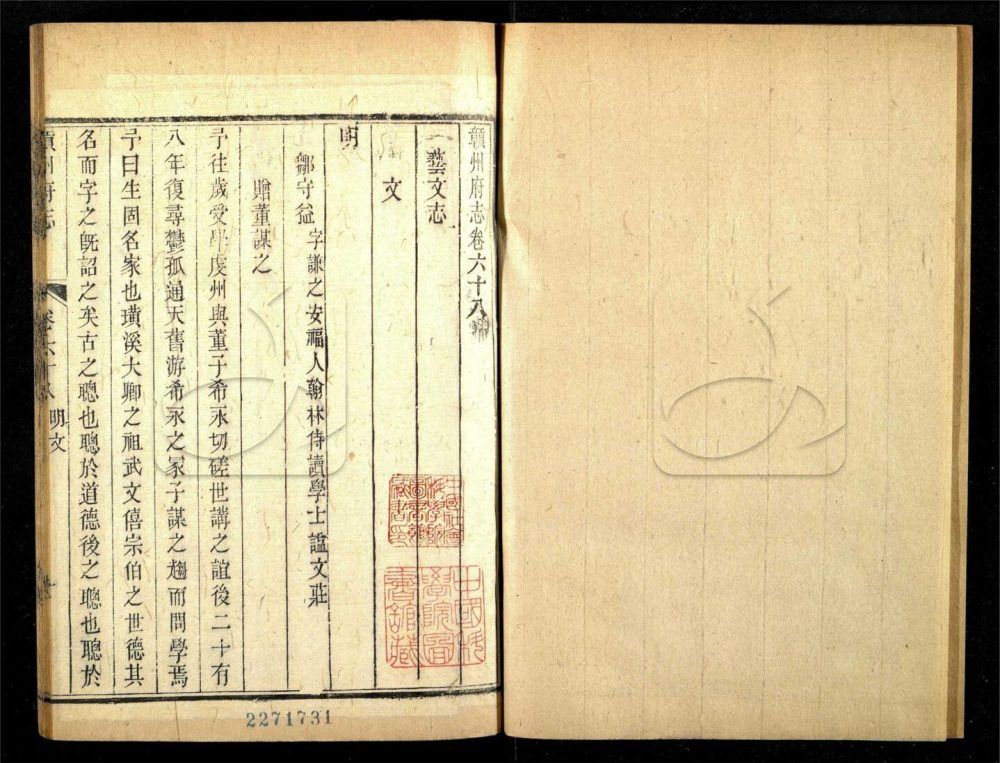 贛州府志卷六十八
藝文志
文
明
鄒守益 字謙之安福人翰林侍讀學士諡文莊
贈董謀之
予往歲受學虔州與董子希永切磋世講之誼後二十有
八年復尋鬱孤通天舊游希永之冢子謀之趨而問學焉
予曰生固名家也璜溪大卿之祖武文僖宗伯之世德其
名而字之旣詔之矣古之聰也聰於道德後之聰也聰於
贛州府志
卷六十八 明文
中國科
學院圖
書館藏
2271731